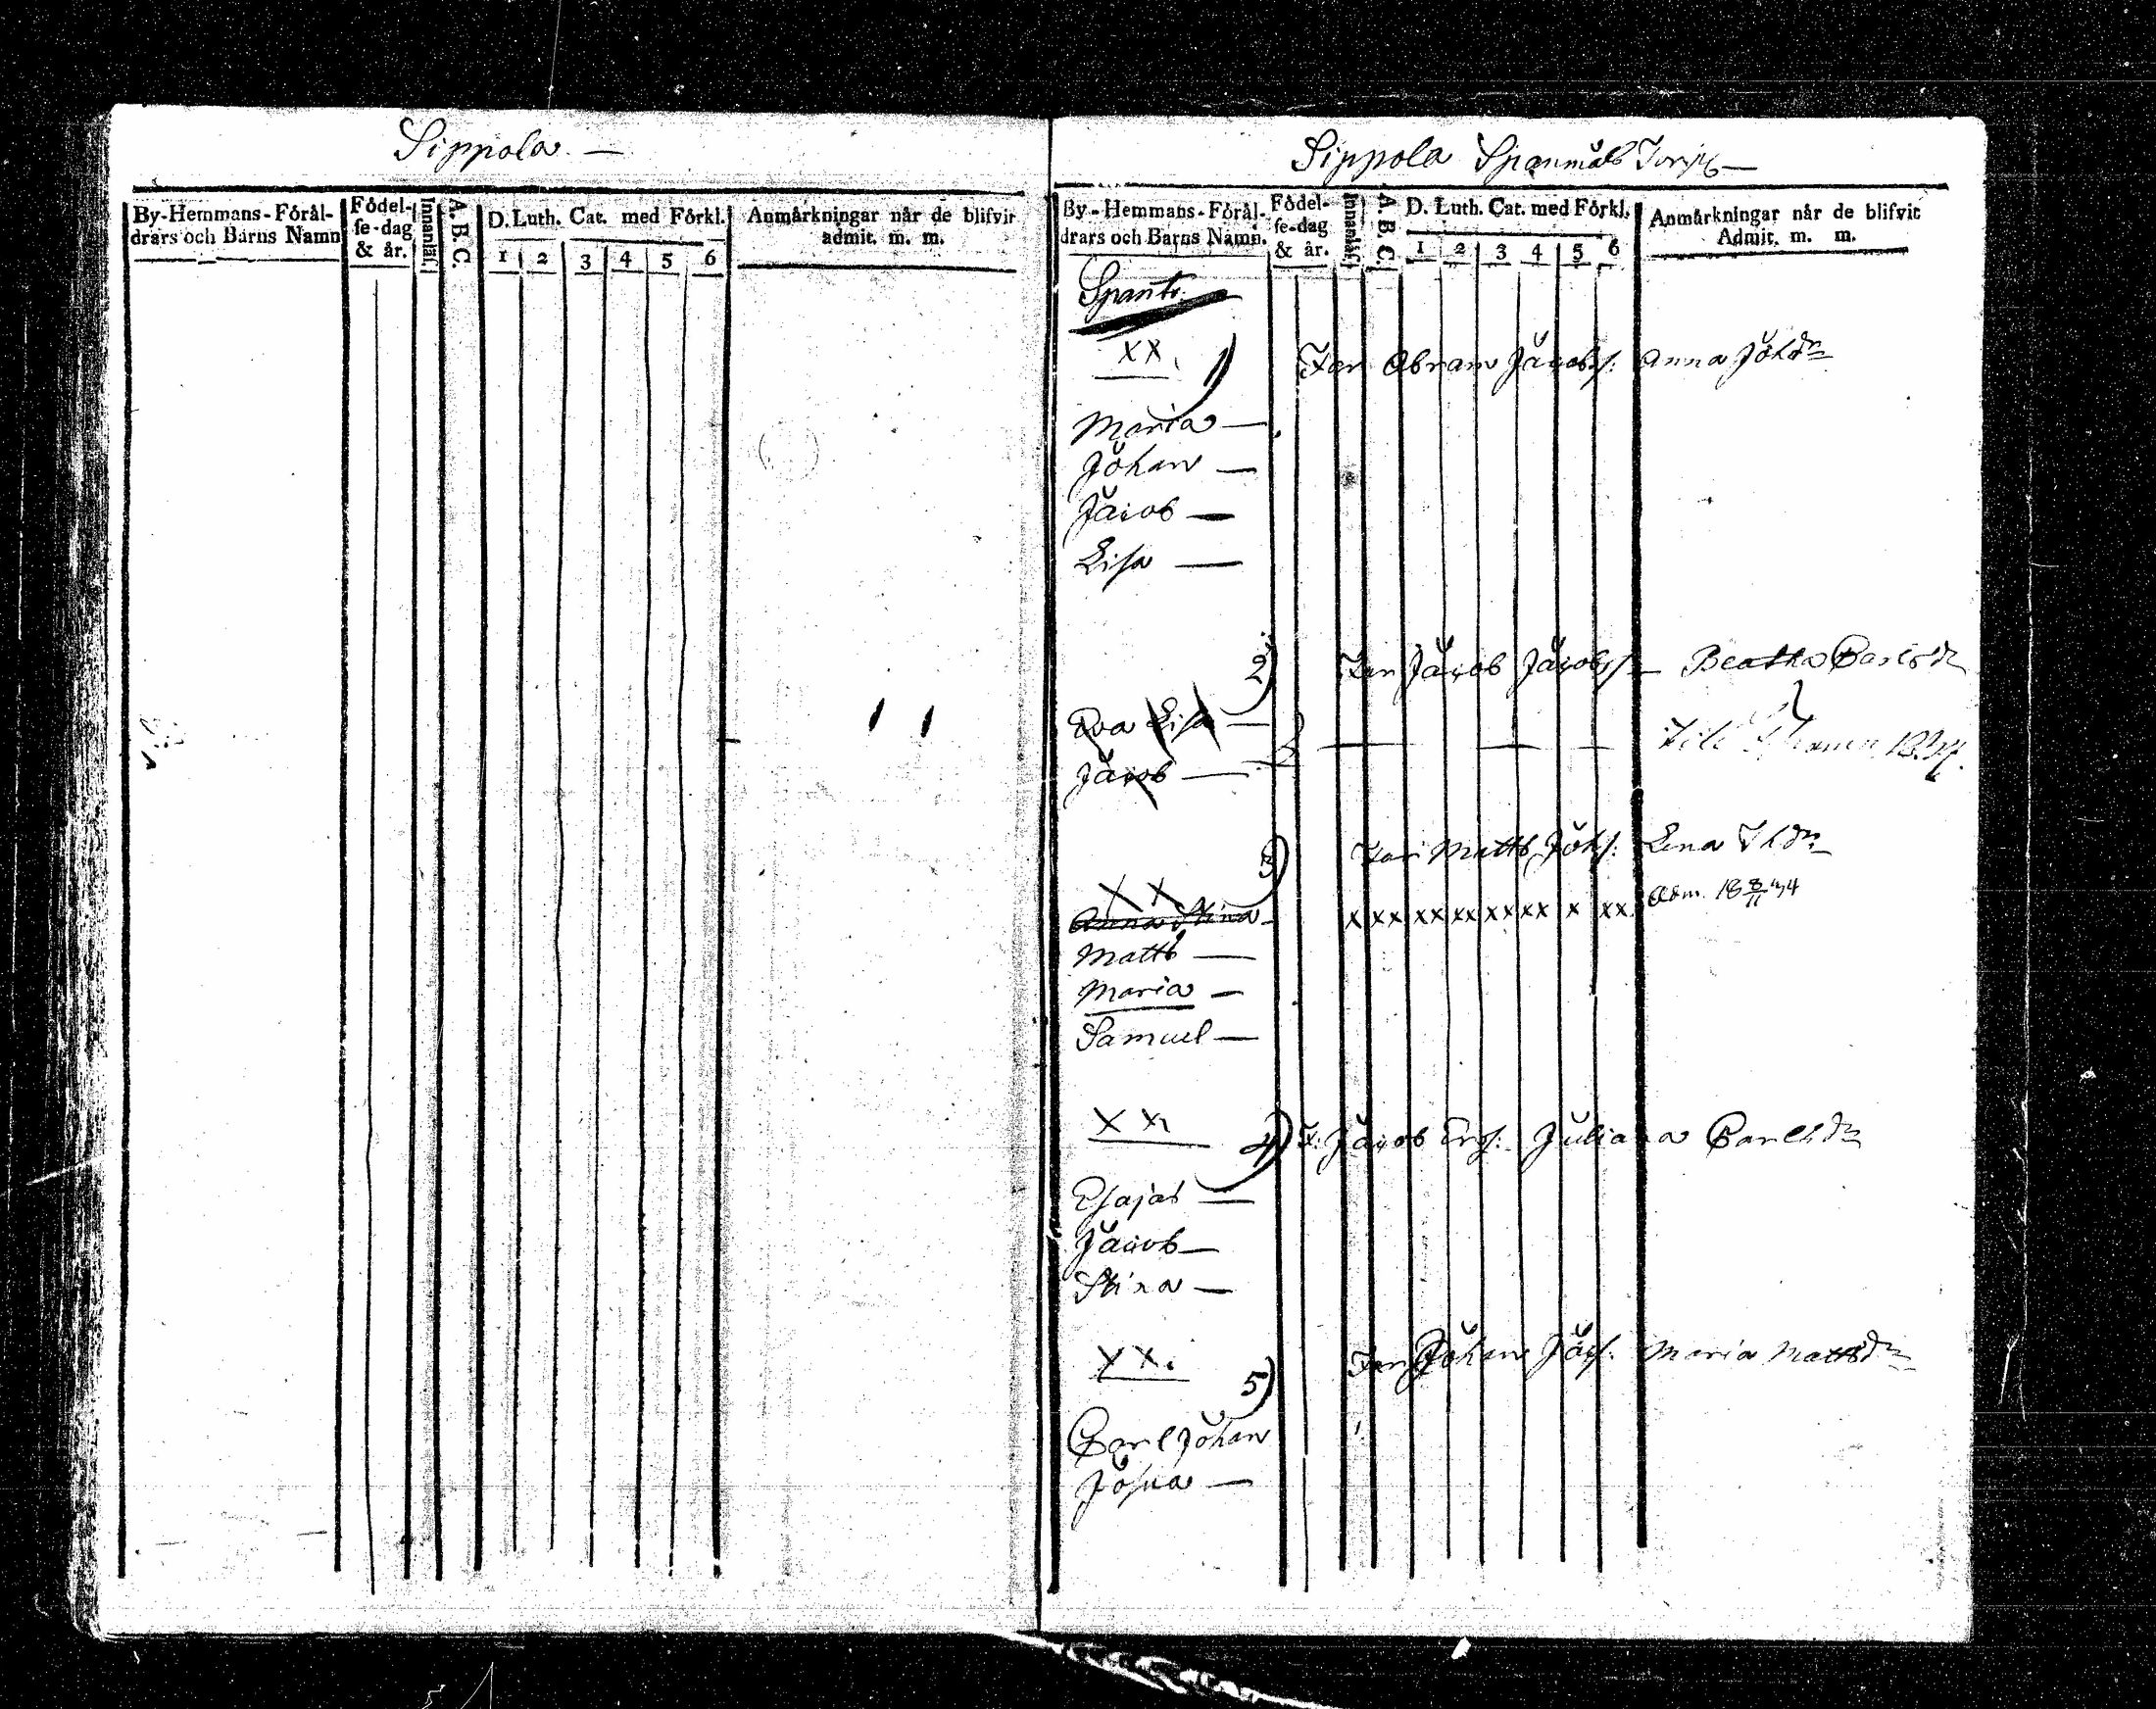 Sippola —
By-Hemmans-Förål-
drars och Barns Namn
Födel-
se-dag
& år.
Innanläs.
A. B. C.
D. Luth. Cat. med Förkl.
1 2 3 4 5 6
Anmårkningar når de blifvit
admit. m. m.
Sippola Spanmåls
By-Hemmans-Förål-
drars och Barns Namn.
Födel-
se-dag
& år.
Innanläs.
A. B. C.
D. Luth. Cat. med Förkl.
1 2 3 4 5 6
Anmårkningar når de blifvit
Admit. m. m.
XX
1) Abram Jacobs: Anna Johdr
Maria —
Johan —
Jacob —
Lisa —
2) Jacob Jacobs — Beatha Carlsdr
Eva Lisa —
Jacob —
3) Matts Johs: Lena
XX
Anna Stina x xx xx xx xx xx x xx Adm. 18 8/11 34
Matts —
Maria —
Samuel —
XX
4) T: Jacob Ers: Juliana Carlsdr
Esajas —
Jacob —
Stina —
XX
5) Johan Jacs: Maria Mattsdr
Carl Johan
Josua —